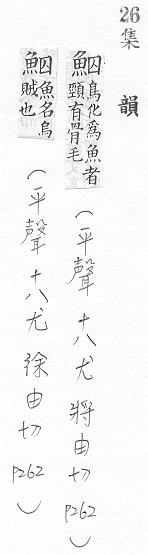 26
集韻
䱔鳥化爲魚者頸有骨毛（平聲十八尤 將由切 P262）
䱔魚名烏賊也（平聲十八尤 徐由切 P262）